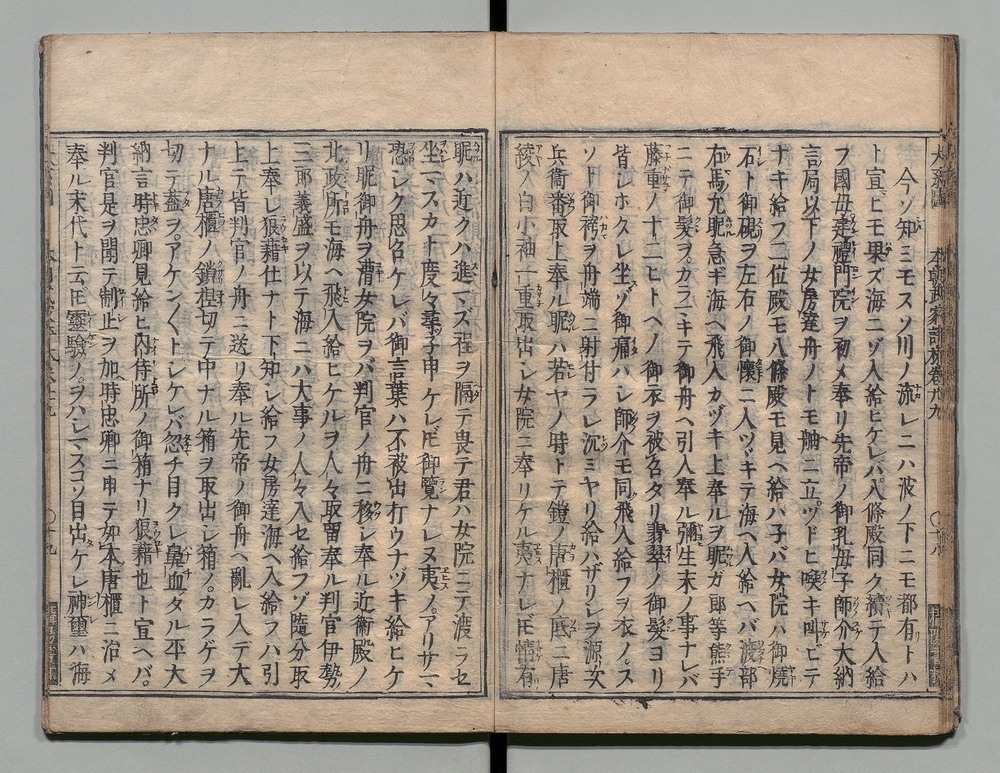 今ゾ知ミモスソ川ノ流レニハ波ノ下ニモ都有トハ
ト宣ヒモ果ズ海ニゾ入給ヒケレバ八條殿同ク續テ入給
フ國母建禮門院ヲ初メ奉リ先帝ノ御乳母子師介大納
言局以下ノ女房達舟ノトモ舳ニ立ツドヒ喚キ叫ビテ
ナキ給フ二位殿モ八條殿モ見ヘ給ハ子バ女院ハ御燒
石ト御硯ヲ左右ノ御懷ニ入ヅヽキテ海ヘ入給ヘバ渡部
右馬允眤急ギ海ヘ飛入カヅキ上奉ルヲ眤ガ郎等熊手
ニテ御髮ヲカラミキテ御舟ヘ引入奉ル彌生末ノ事ナレバ
藤重ノ十二ヒトヘノ御衣ヲ被召タリ翡翠ノ御髮ヨリ
皆シホタレ坐ゾ御痛ハシ師介モ同飛入給フヲ衣ノス
ソト御袴ヲ舟端ニ射付ラレ沉ミヤリ給ハザリシヲ源次
兵衛番取上奉ル眤ハ若ヤノ時トテ鎧ノ唐櫃ノ底ニ唐
綾ノ白小袖一重取出シ女院ニ奉リケル夷ナレ𪜈情有
眤ハ近クハ進マズ程ヲ隔テ畏テ君ハ女院ニテ渡ラセ
坐マスカト度々事子申ケレ𪜈御覽ナレヌ夷ノアリサマ
恐シク思召ケレバ御言葉ハ不被出打ウナヅキ給ヒケ
リ眤御舟ヲ漕女院ヲバ判官ノ舟ニ移シ奉ル近衛殿ノ
北政所モ海ヘ飛入給ヒケルヲ人々取留奉ル判官伊勢
三郎義盛ヲ以テ海ニハ大事ノ人々入セ給フゾ隨分取
上奉レ狼藉仕ナト下知シ給フ女房達海ヘ入給フハ引
上テ皆判官ノ舟ニ送リ奉ル先帝ノ御舟ヘ亂レ入テ大
ナル唐櫃ノ鎖棍切テ中ナル箱ヲ取出シ箱ノカラゲヲ
切テ盖ヲアケン〱トシケレバ忽チ目クレ鼻血タル平大
納言時忠卿見給ヒ内侍所ノ御箱ナリ狼藉也ト宣ヘバ
判官是ヲ聞テ制止ヲ加時忠卿ニ申テ如本唐櫃ニ治メ
奉ル末代ト云𪜈靈驗ノヲハシマスコソ目出ケレ神璽ハ海